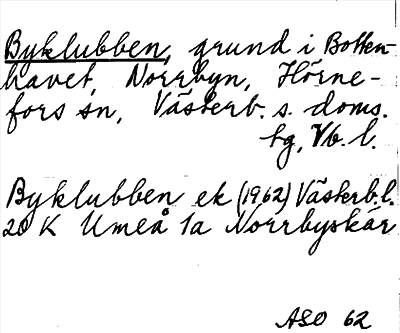 Byklubben, grund i Botten-
havet, Norrbyn, Hörne-
fors sn, Västerb. s. doms.
tg, Vb. l.
Byklubben ek (1962) Västerb. l.
20 K Umeå 1a Norrbyskär
ASO 62